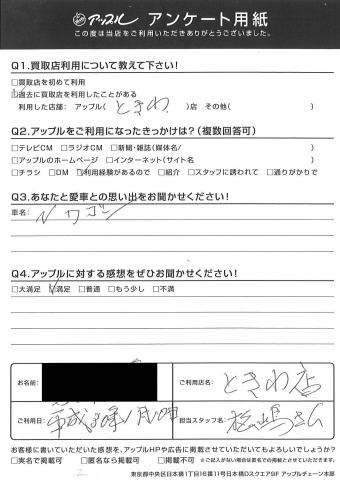 アップル アンケート用紙
この度は当店をご利用いただきありがとうございました。
Q1.買取店利用について教えて下さい!
□買取店を初めて利用
☑過去に買取店を利用したことがある
利用した店舗: アップル( ときわ )店 その他( )
Q2.アップルをご利用になったきっかけは?(複数回答可)
□テレビCM □ラジオCM □新聞・雑誌(媒体名/ )
□アップルのホームページ □インターネット(サイト名 )
□チラシ □DM ☑利用経験があるので □紹介 □スタッフに誘われて □通りがかりで
Q3.あなたと愛車との思い出をお聞かせください!
車名: N ワゴン
Q4.アップルに対する感想をぜひお聞かせください!
□大満足 ☑満足 □普通 □もう少し □不満
お名前:
ご利用店名: ときわ店
ご利用日: 平成30年1月10日
担当スタッフ名: 松島さん
お客様に書いていただいた感想を、アップルHPや広告に掲載させていただいてもよろしいでしょうか?
□実名で掲載可 □匿名なら掲載可 □掲載不可 ※ご記入がない場合は匿名での掲載とさせていただきます。
東京都中央区日本橋1丁目16番11号日本橋Dスクエア9F アップルチェーン本部